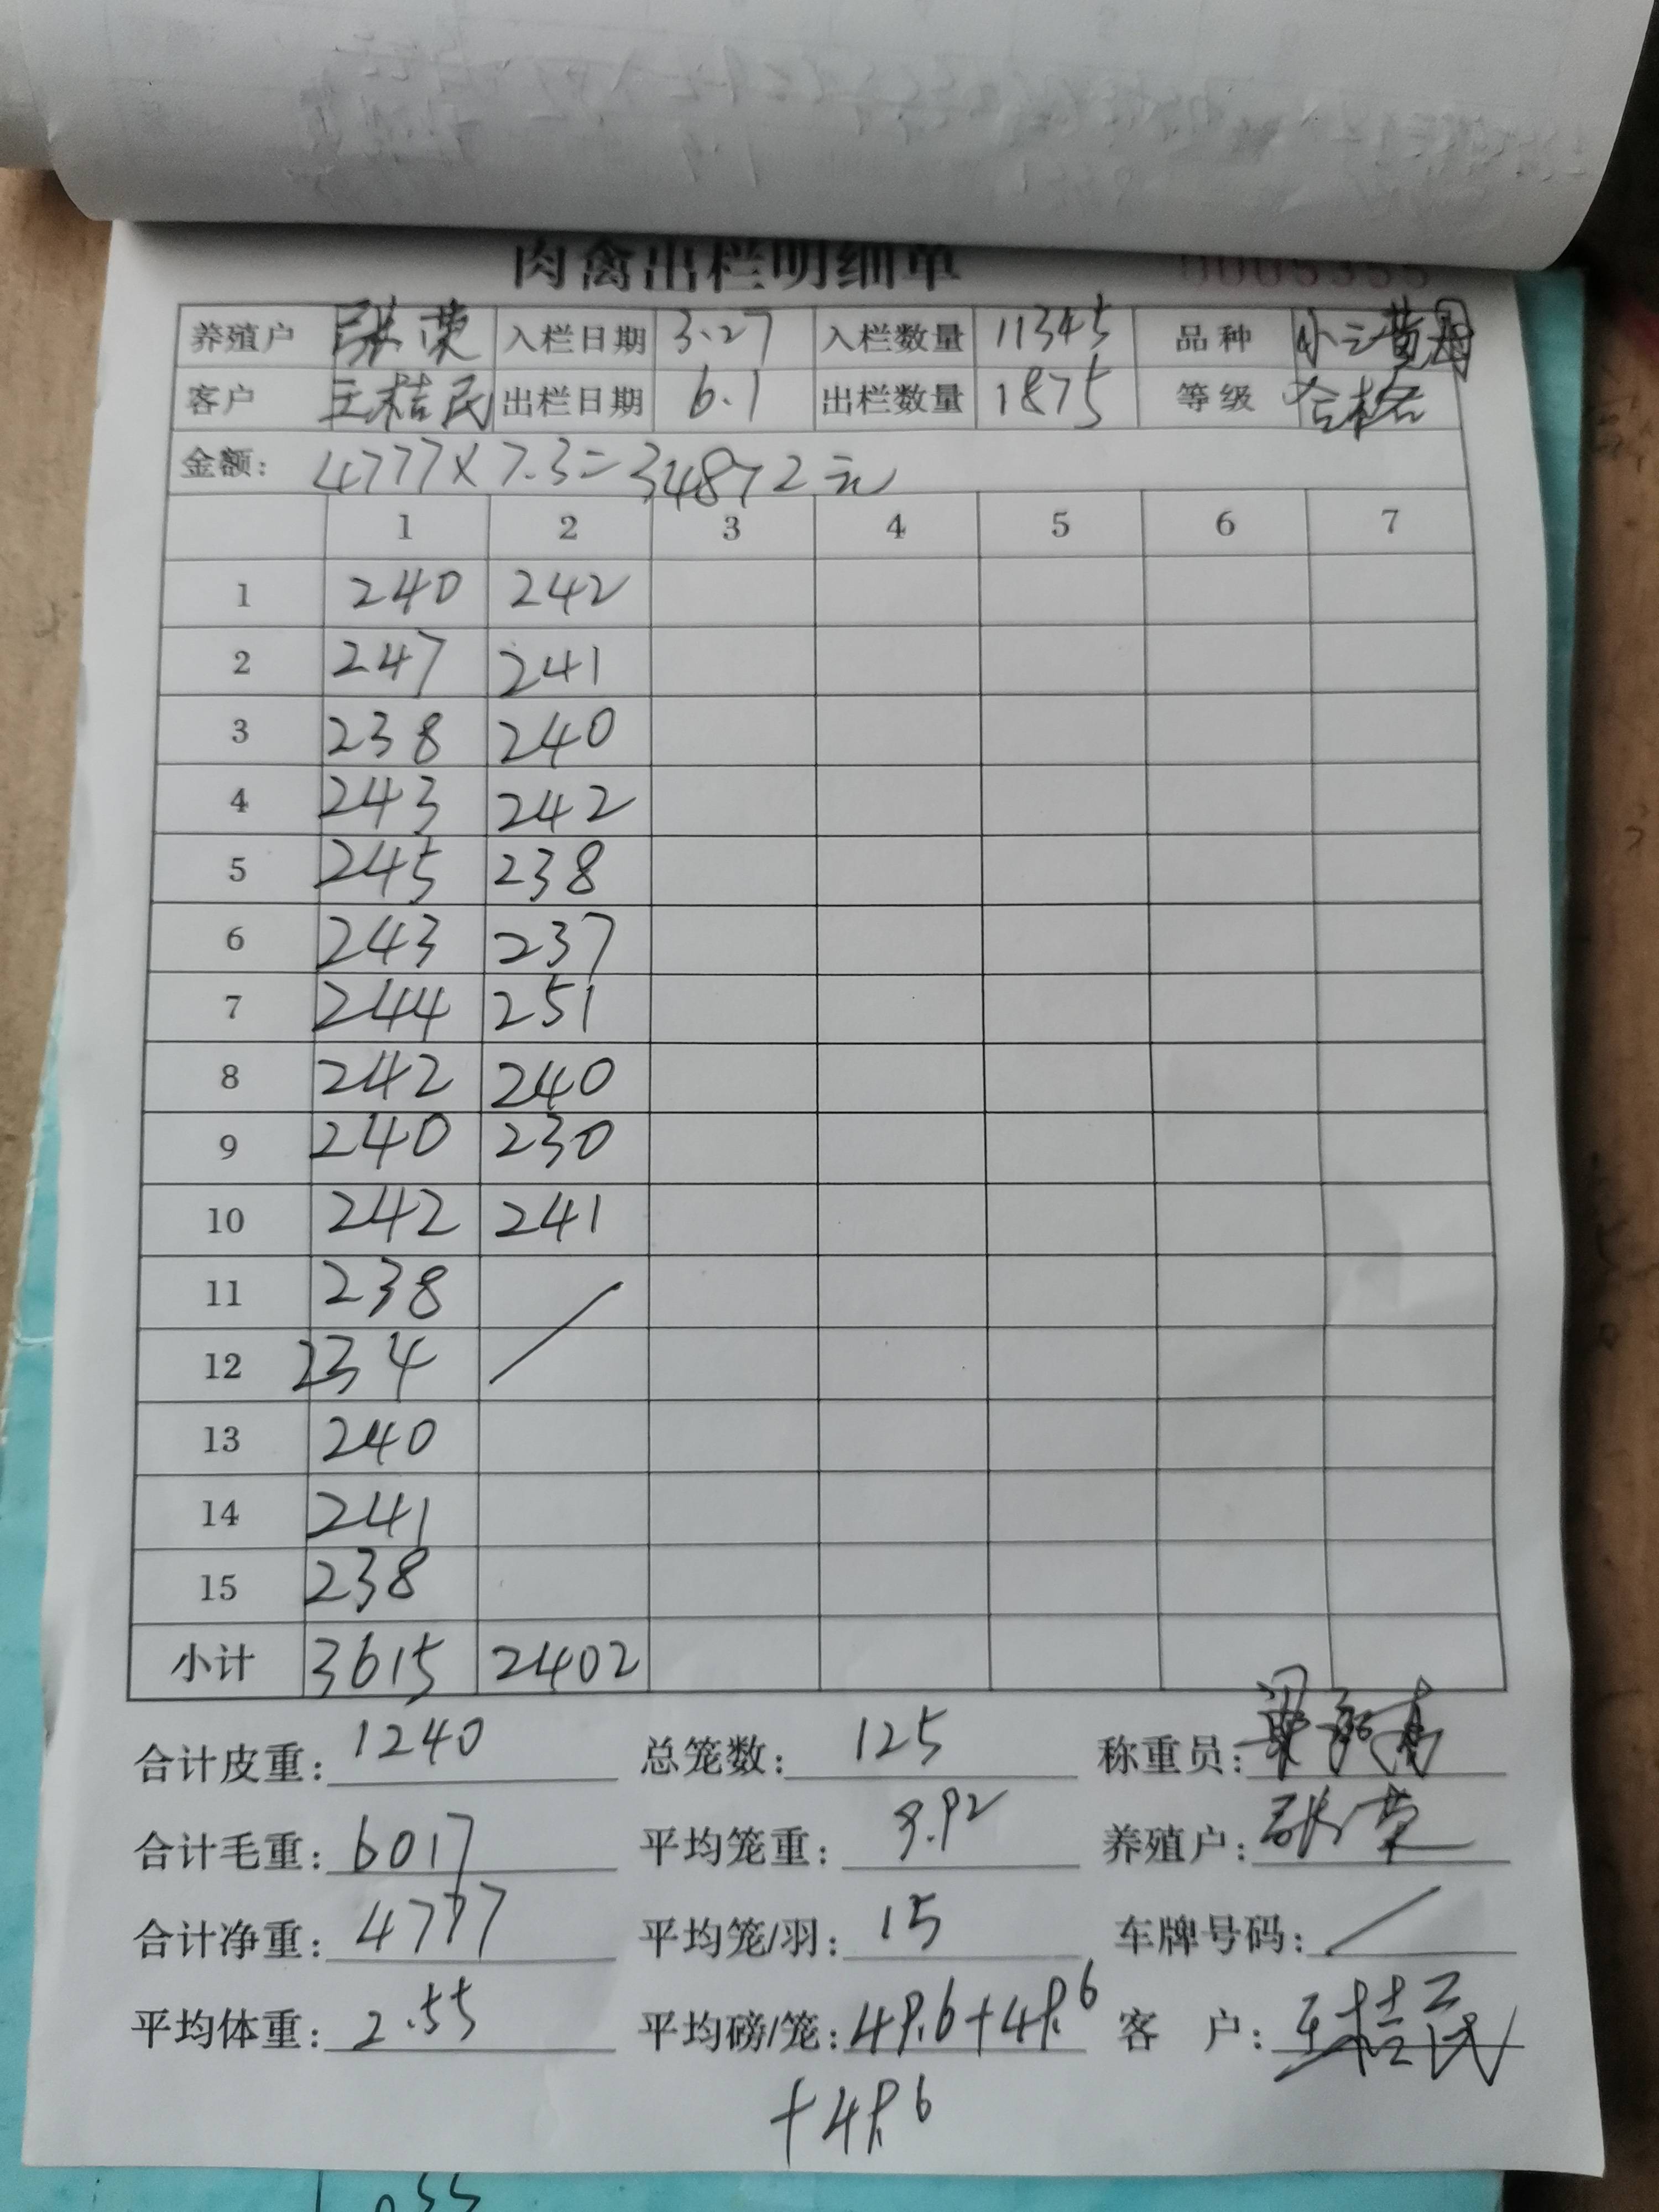 肉禽出栏明细单 0005355
养殖户 张荣 入栏日期 3.27 入栏数量 11345 品种 小三黄母
客户 王桂民 出栏日期 6.1 出栏数量 1875 等级 合格
金额: 4777×7.3=34872元
1 2 3 4 5 6 7
1 240 242
2 247 241
3 238 240
4 243 242
5 245 238
6 243 237
7 244 251
8 242 240
9 240 230
10 242 241
11 238
12 234
13 240
14 241
15 238
小计 3615 2402
合计皮重: 1240 总笼数: 125 称重员:
合计毛重: 6017 平均笼重: 9.92 养殖户: 张荣
合计净重: 4777 平均笼/羽: 15 车牌号码:
平均体重: 2.55 平均磅/笼: 49.6+49.6 客 户: 王桂民
+49.6